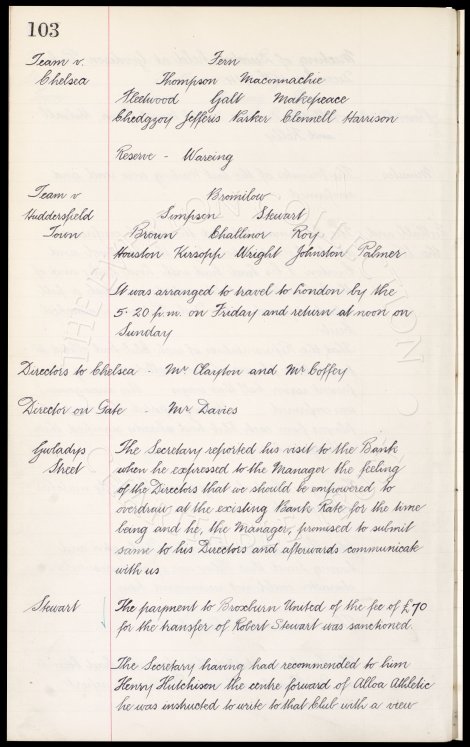 103
Team v. Fern
Chelsea Thompson Maconnachie
Fleetwood Galt Makepeace
Chedgzoy Jefferis Parker Clennell Harrison
Reserve - Wareing
Team v Bromilow
Huddersfield Simpson Stewart
Town Brown Challinor Roy
Houston Kirsopp Wright Johnston Palmer
It was arranged to travel to London by the
5.20 p.m. on Friday and return at noon on
Sunday
Directors to Chelsea - Mr Clayton and Mr Coffey
Director on Gate - Mr Davies
Gwladys The Secretary reported his visit to the Bank
Street when he expressed to the Manager the feeling
of the Directors that we should be empowered to
overdraw at the existing Bank Rate for the time
being and he, the Manager, promised to submit
same to his Directors and afterwards communicate
with us
Stewart The payment to Broxburn United of the fee of £70
for the transfer of Robert Stewart was sanctioned.
The Secretary having had recommended to him
Henry Hutchison the centre forward of Alloa Athletic
he was instructed to write to that Club with a view